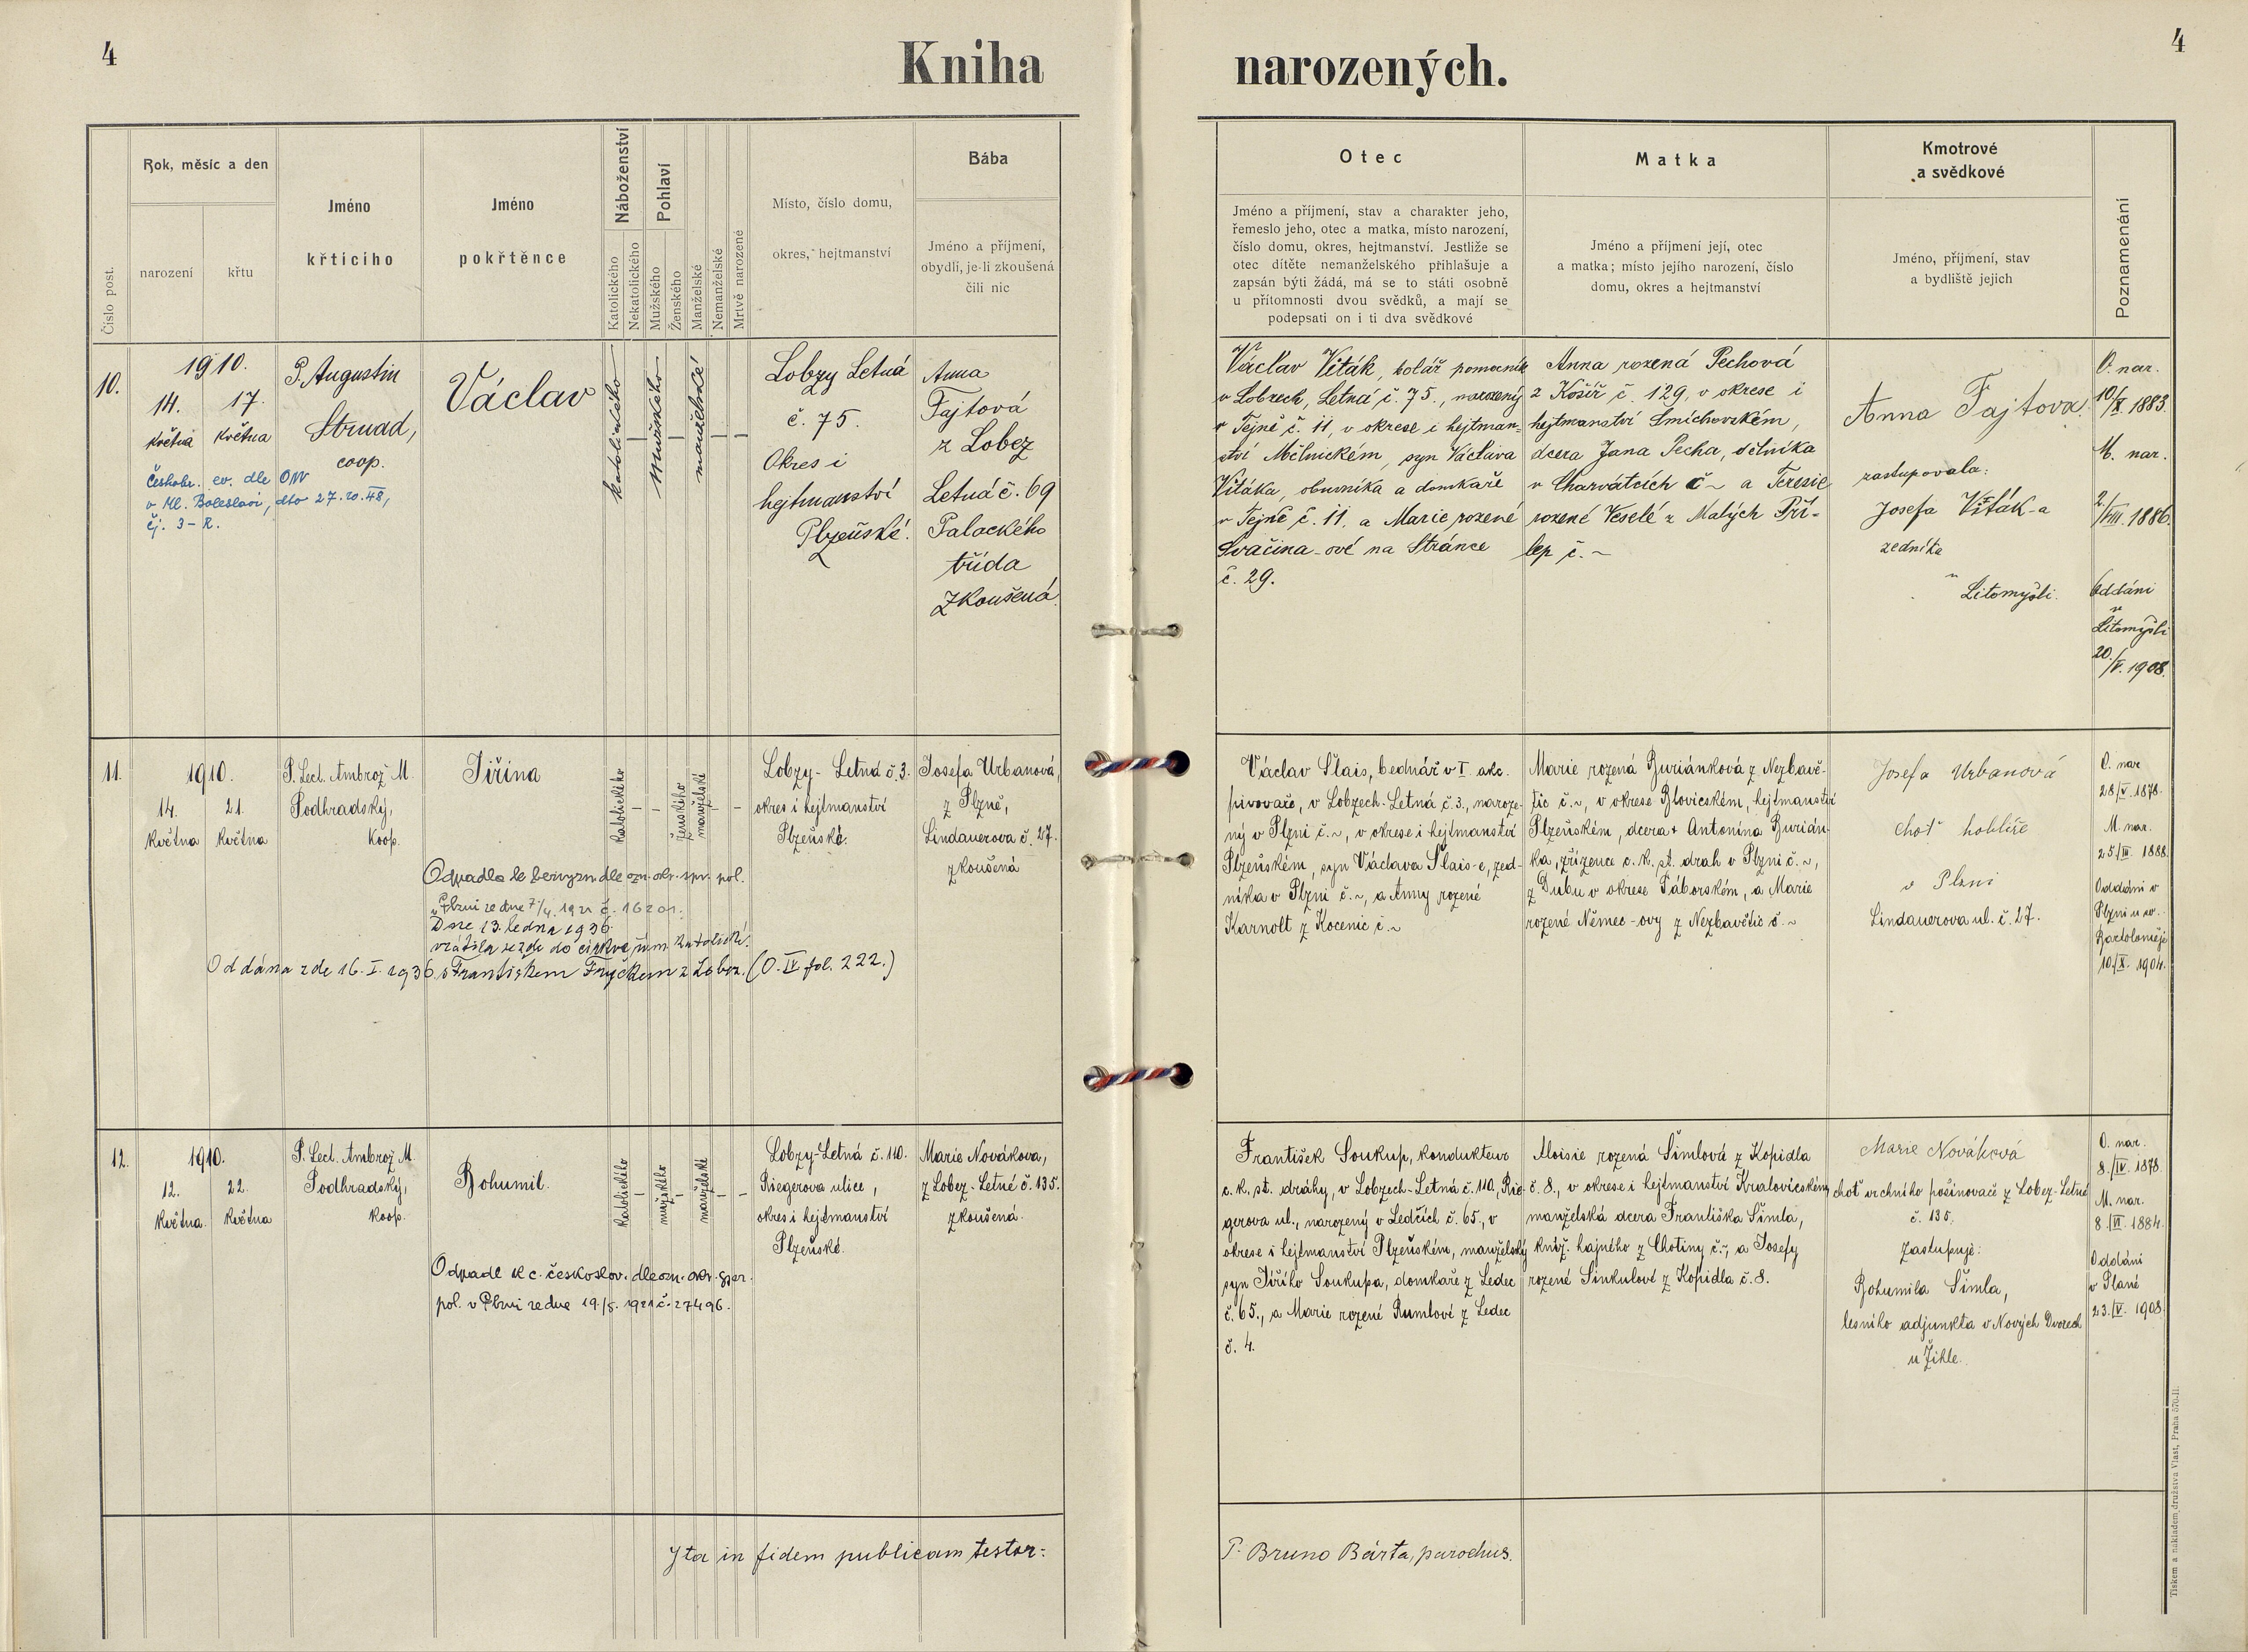 4
Kniha
narozených.
4
Číslo post.
Rok, měsíc a den
narození
křtu
Jméno
křtícího
Jméno
pokřtěnce
Náboženství
Katolického
Nekatolického
Pohlaví
Mužského
Ženského
Manželské
Nemanželské
Mrtvě narozené
Místo, číslo domu,
okres, hejtmanství
Bába
Jméno a příjmení,
obydlí, je-li zkoušená
čili nic
Otec
Jméno a příjmení, stav a charakter jeho,
řemeslo jeho, otec a matka, místo narození,
číslo domu, okres, hejtmanství. Jestliže se
otec dítěte nemanželského přihlašuje a
zapsán býti žádá, má se to státi osobně
u přítomnosti dvou svědků, a mají se
podepsati on i ti dva svědkové
Matka
Jméno a příjmení její, otec
a matka; místo jejího narození, číslo
domu, okres a hejtmanství
Kmotrové
a svědkové
Jméno, příjmení, stav
a bydliště jejich
Poznamenání
10.
1910.
14.
května
17.
května
P. Augustin
Strnad,
coop.
Českobr. ev. dle ONV
v Ml. Boleslavi, dto 27.10.48,
čj. 3-R.
Václav
katolického
—
mužského
—
manželské
—
—
Lobzy Letná
č. 75.
Okres i
hejtmanství
Plzeňské.
Anna
Fajtová
z Lobez
Letná č. 69
Palackého
třída
zkoušená.
Václav Viták, kolář pomocník
v Lobzech, Letná č. 75., narozený
v Tejně č. 11, v okrese i hejtman=
ství Mělnickém, syn Václava
Vitáka, obuvníka a domkaře
v Tejně č. 11, a Marie rozené
Svačina-ové na Stránce
č. 29.
Anna rozená Pechová
z Košíř č. 129, v okrese i
hejtmanství Smíchovském,
dcera Jana Pecha, dělníka
v Charvátcích č ~ a Teresie
rozené Veselé z Malých Pří-
lep č. ~
Anna Fajtova.
zastupovala:
Josefa Viták-a
zedníka
v
Litomyšli.
O. nar.
10/X. 1883.
M. nar.
2/VIII. 1886.
Oddáni
v
Litomyšli
20./V. 1908.
11.
1910.
14.
května
21.
května
P. Lect. Ambrož M.
Podhradský,
koop.
Jiřina
katolického
—
—
ženského
manželské
—
—
Lobzy-Letná č. 3.
okres i hejtmanství
Plzeňské.
Josefa Urbanová,
z Plzně,
Lindauerova č. 27.
zkoušená
Odpadla k bezvyzn. dle ozn. okr. spr. pol.
v Plzni ze dne 7/4. 1921 č. 16201.
Dne 13. ledna 1936.
vrátila se zde do církve řím. katolické.
Oddána zde 16. I. 1936 s Františkem Fryčkem z Lobez. (O. IV fol. 222.)
Václav Šlais, bednář v I. akc.
pivovaře, v Lobzech-Letná č. 3., naroze-
ný v Plzni č. ~, v okrese i hejtmanství
Plzeňském, syn Václava Šlais-e, zed-
níka v Plzni č. ~, a Anny rozené
Karnolt z Kocenic č. ~
Marie rozená Buriánková z Nezbavě-
tic č. ~, v okrese Blovickém, hejtmanství
Plzeňském, dcera + Antonína Burián-
ka, zřízence c. k. st. drah v Plzni č. ~,
z Dubu v okrese Táborském, a Marie
rozené Němec-ovy z Nezbavětic č. ~
Josefa Urbanová
choť hoblíře
v Plzni
Lindauerova ul. č. 27.
O. nar
28/V. 1878.
M. nar.
25/III. 1888.
Oddáni v
Plzni u sv.
Bartoloměje
10./X. 1904.
12.
1910.
12.
května.
22.
května
P. Lect. Ambrož M.
Podhradský,
koop.
Bohumil.
katolického
—
mužského
—
manželské
—
—
Lobzy-Letná č. 110.
Riegerova ulice,
okres i hejtmanství
Plzeňské.
Marie Nováková,
z Lobez-Letné č. 135.
zkoušená.
Odpadl k c. českoslov. dle ozn. okr. spr.
pol. v Plzni ze dne 19./5. 1921 č. 27496.
František Soukup, kondukteur
c. k. st. dráhy, v Lobzech-Letná č. 110, Rie-
gerova ul., narozený v Ledčích č. 65., v
okrese i hejtmanství Plzeňském, manželský
syn Jiřího Soukupa, domkaře z Ledec
č. 65., a Marie rozené Rumlové z Ledec
č. 4.
Aloisie rozená Šimlová z Kopidla
č. 8., v okrese i hejtmanství Kralovickém,
manželská dcera Františka Šimla,
kníž. hajného z Chotiny č. ~, a Josefy
rozené Sinkulové z Kopidla č. 8.
Marie Nováková
choť vrchního pošinovače z Lobez-Letné
č. 135.
Zastupuje:
Bohumila Šimla,
lesního adjunkta v Nových Dvorech
u Žihle.
O. nar.
8./IV. 1878.
M. nar.
8./VI. 1884.
Oddáni
v Plané
23./V. 1908.
Ita in fidem publicam testor:
P. Bruno Bárta, parochus.
Tiskem a nákladem družstva Vlast, Praha 570-II.